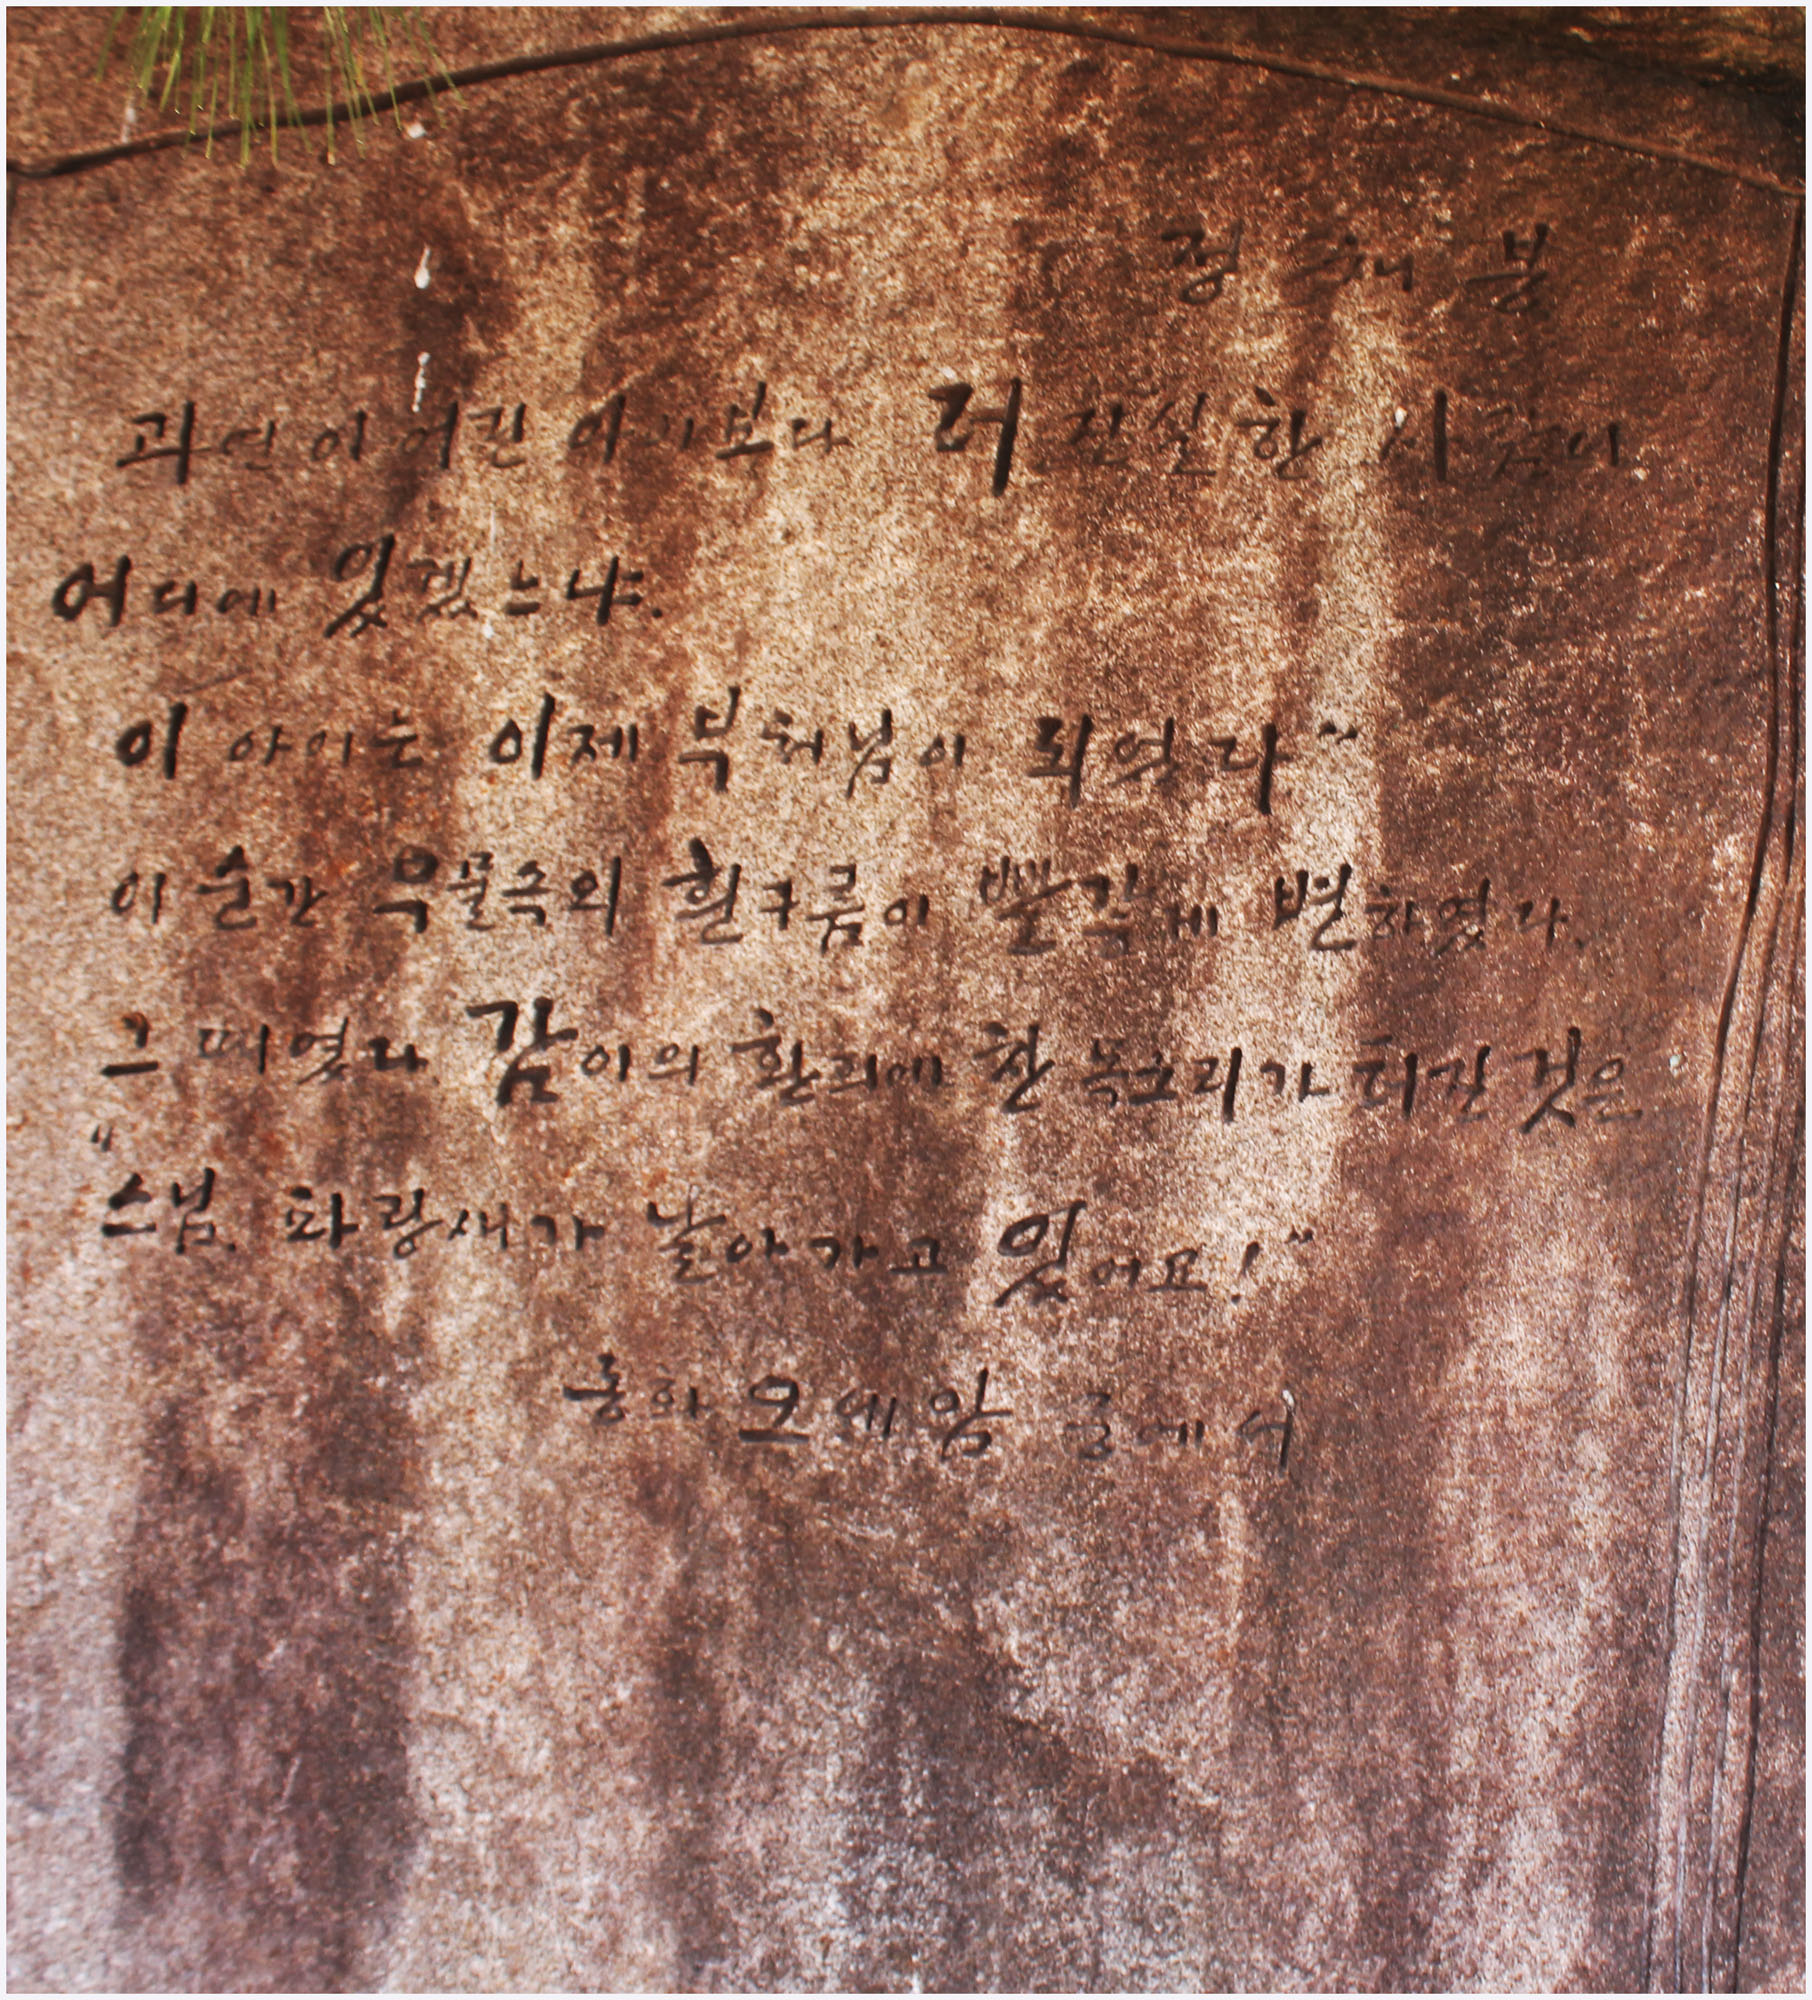 정 채 봉
과연 이 어린 아기보다 더 진실한 사람이
어디에 있겠느냐.
이 아이는 이제 부처님이 되었다"
이 순간 우물속의 흰구름이 빨갛게 변하였다.
그 때였다. 감이의 환희에 찬 목소리가 터진 것은
"스님. 파랑새가 날아가고 있어요!"
동화 오세암 글에서